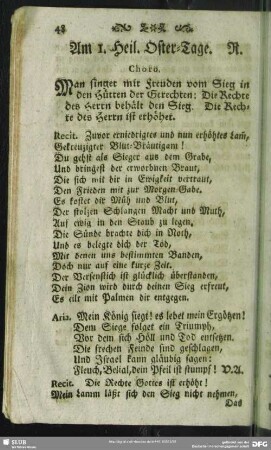 48
Am 1. Heil. Oster-Tage. R.
Choro.
Man singet mit Freuden vom Sieg in
den Hütten der Gerechten; Die Rechte
des Herrn behält den Sieg. Die Rech-
te des Herrn ist erhöhet.
Recit. Zuvor erniedrigtes und nun erhöhtes Lam̄,
Gekreuzigter Blut-Bräutigam!
Du gehst als Sieger aus dem Grabe,
Und bringest der erworbnen Braut,
Die sich mit dir in Ewigkeit vertraut,
Den Frieden mit zur Morgen-Gabe.
Es kostet dir Müh und Blut,
Der stolzen Schlangen Macht und Muth,
Auf ewig in den Staub zu legen,
Die Sünde brachte dich in Noth,
Und es belegte dich der Tod,
Mit denen uns bestimmten Banden,
Doch nur auf eine kurze Zeit.
Der Versenslich ist glücklich überstanden,
Dein Zion wird durch deinen Sieg erfreut,
Es eilt mit Palmen dir entgegen.
Aria. Mein König siegt! es lebet mein Ergötzen!
Dem Siege folget ein Triumph,
Vor dem sich Höll und Tod entsetzen.
Die frechen Feinde sind geschlagen,
Und Israel kann gläubig sagen:
Fleuch, Belial, dein Pfeil ist stumpf! V.A.
Recit. Die Rechte Gottes ist erhöht!
Mein Lamm läßt sich den Sieg nicht nehmen,
Das
SLUB